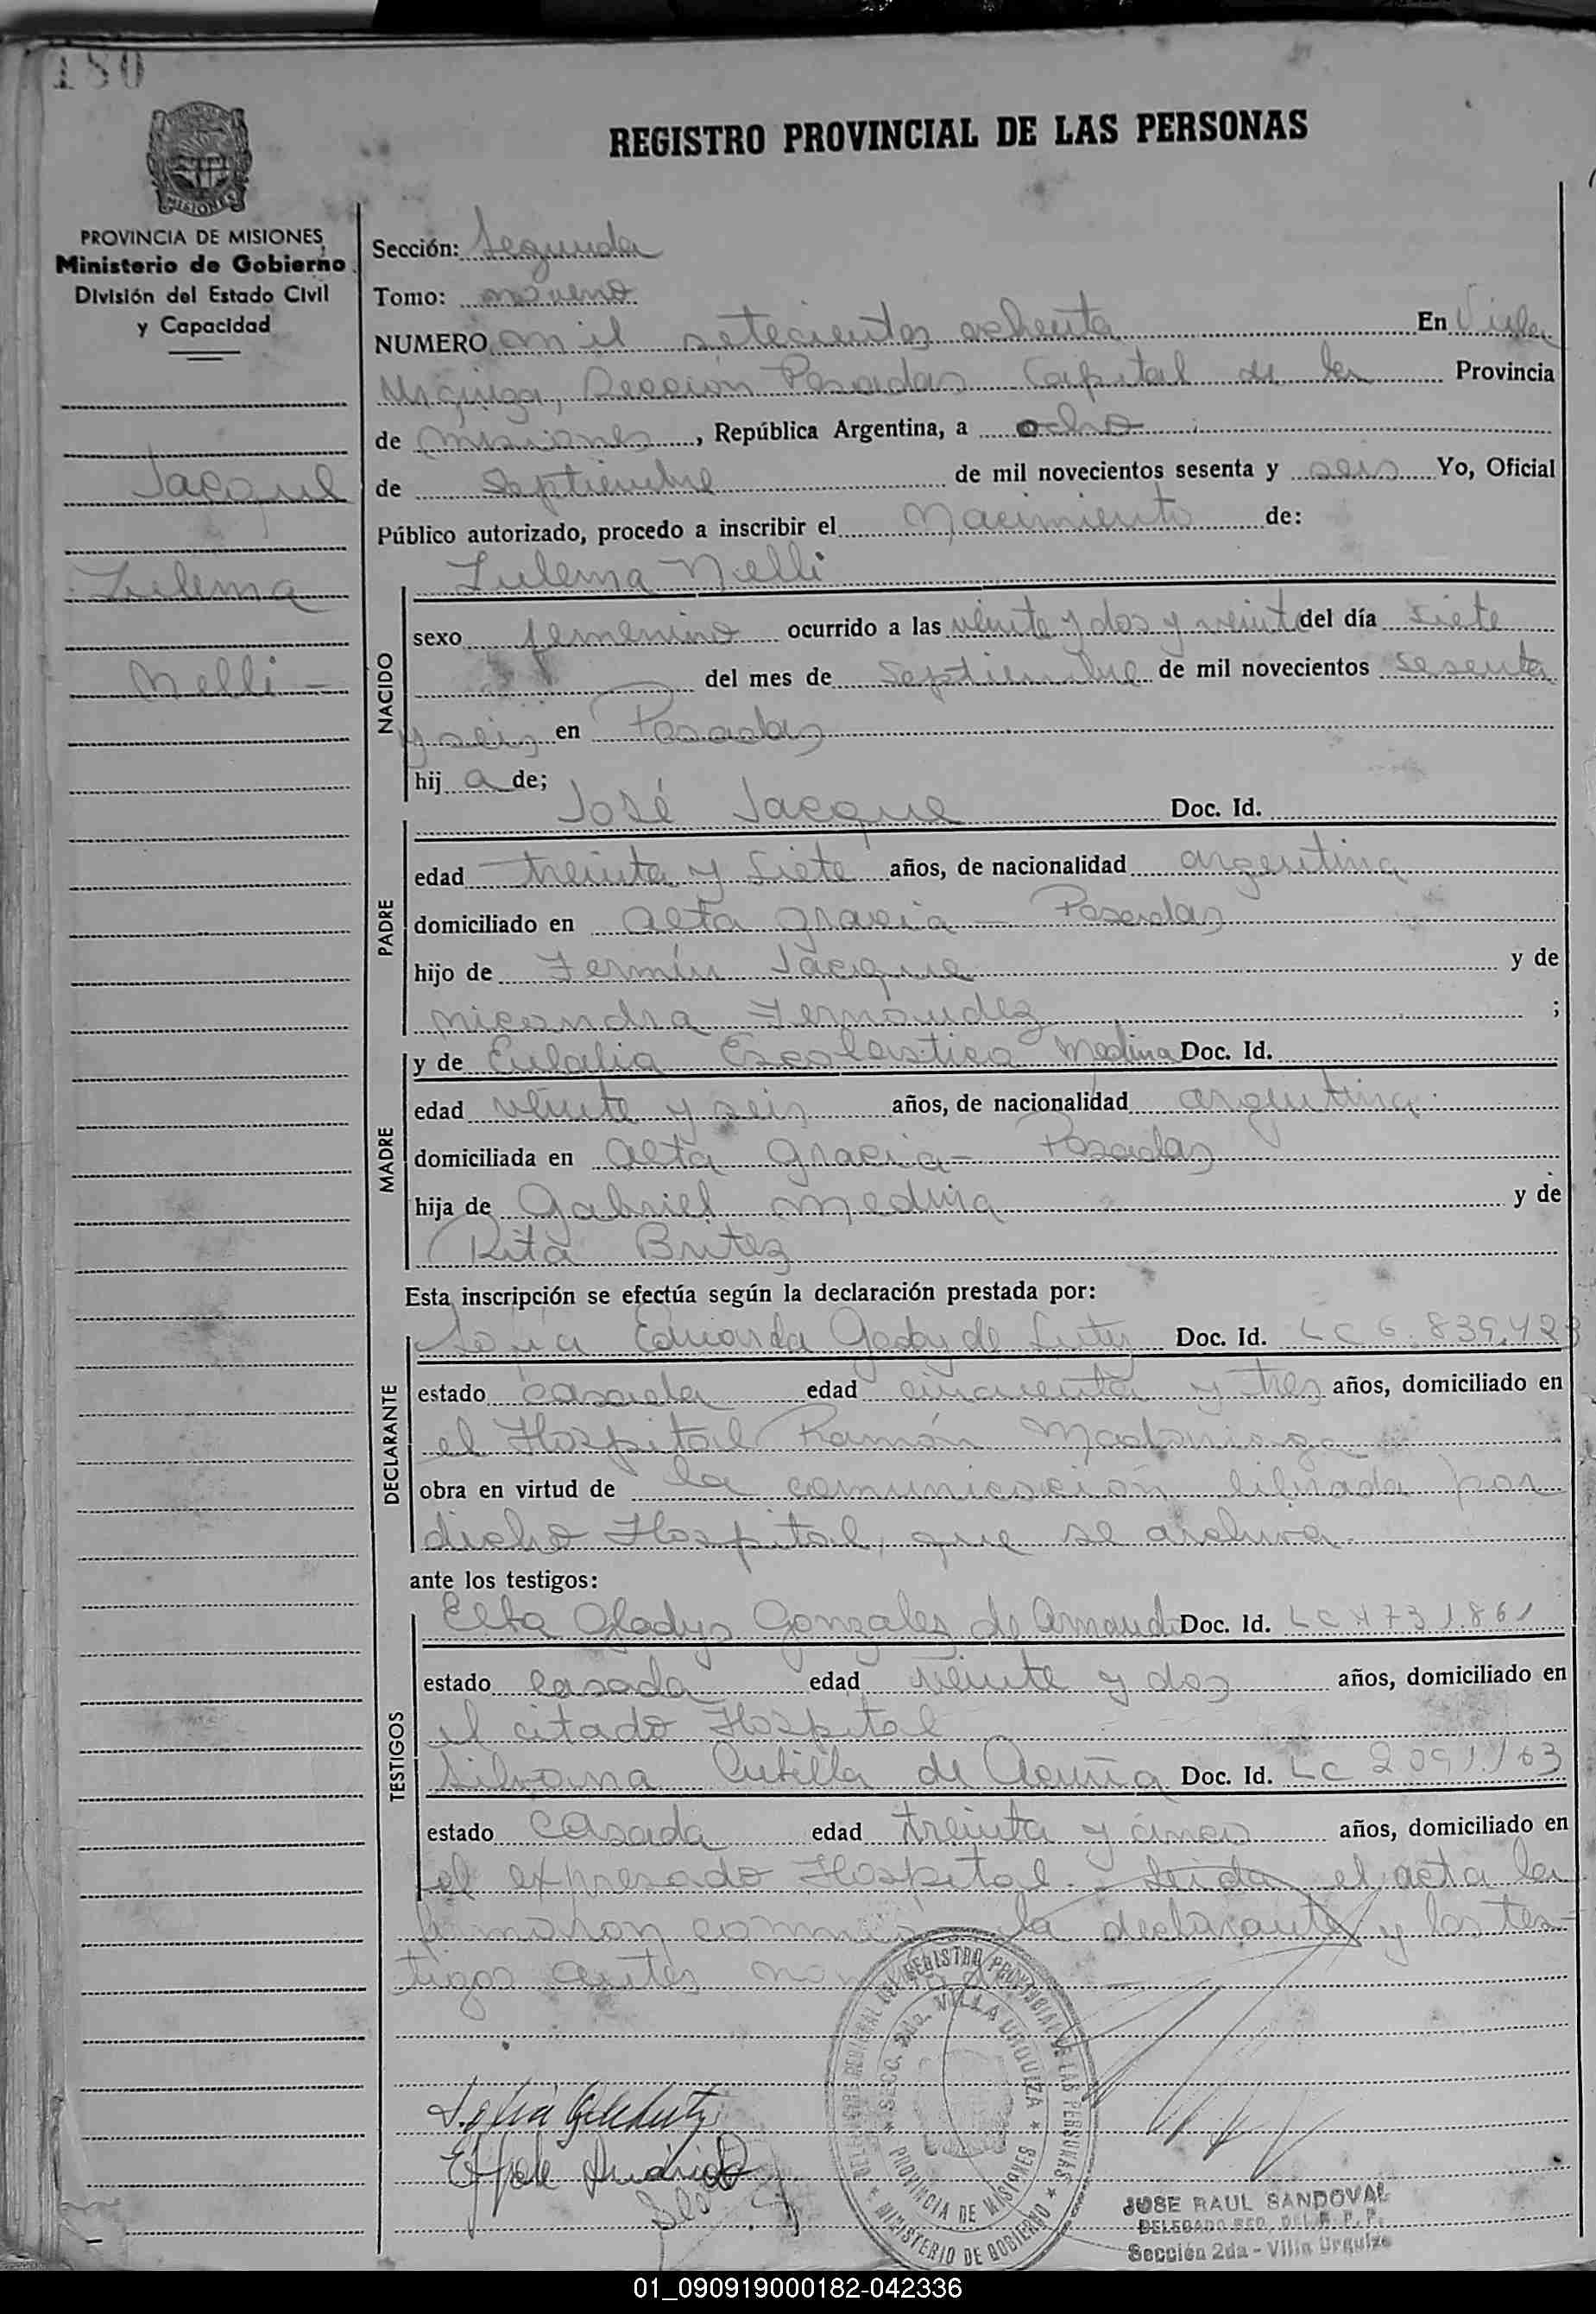 180
REGISTRO PROVINCIAL DE LAS PERSONAS
MISIONES
PROVINCIA DE MISIONES
Ministerio de Gobierno
División del Estado Civil
y Capacidad
Jacque
Zulema
Nelli -
Sección: Segunda
Tomo: noveno
NUMERO mil setecientos ochenta En Villa
Urquiza, Sección Posadas Capital de la Provincia
de Misiones, República Argentina, a ocho
de Septiembre de mil novecientos sesenta y seis Yo, Oficial
Público autorizado, procedo a inscribir el Nacimiento de:
Zulema Nelli
NACIDO
sexo femenino ocurrido a las veinte y dos y veinte del día siete
del mes de Septiembre de mil novecientos sesenta
y seis en Posadas
hij a de;
José Jacque Doc. Id.
PADRE
edad treinta y siete años, de nacionalidad argentina
domiciliado en Alta Gracia - Posadas
hijo de Fermín Jacque y de
Nicandra Fernandez ;
y de Eulalia Escolastica Medina Doc. Id.
MADRE
edad veinte y seis años, de nacionalidad argentina
domiciliada en Alta Gracia - Posadas
hija de Gabriel Medina y de
Rita Britez
Esta inscripción se efectúa según la declaración prestada por:
Eduarda Godoy de Doc. Id. LC 6.839.423
DECLARANTE
estado casada edad cincuenta y tres años, domiciliado en
el Hospital Ramón Madariaga
obra en virtud de la comunicación librada por
dicho Hospital, que se archiva.
ante los testigos:
Elba Gladys Gonzales de Doc. Id. LC
TESTIGOS
estado casada edad veinte y dos años, domiciliado en
el citado Hospital
Silvana de Acuña Doc. Id. LC
estado casada edad treinta y cinco años, domiciliado en
el expresado Hospital. Leida el acta la
firmaron la declarante y los tes-
tigos antes
DELEGACION REGIONAL DEL REGISTRO PROVINCIAL DE LAS PERSONAS
SECC. 2da. VILLA URQUIZA
PROVINCIA DE MISIONES
MINISTERIO DE GOBIERNO
JOSE RAUL SANDOVAL
DELEGADO REG. DEL R. P. P.
Sección 2da - Villa Urquiza
01_090919000182-042336